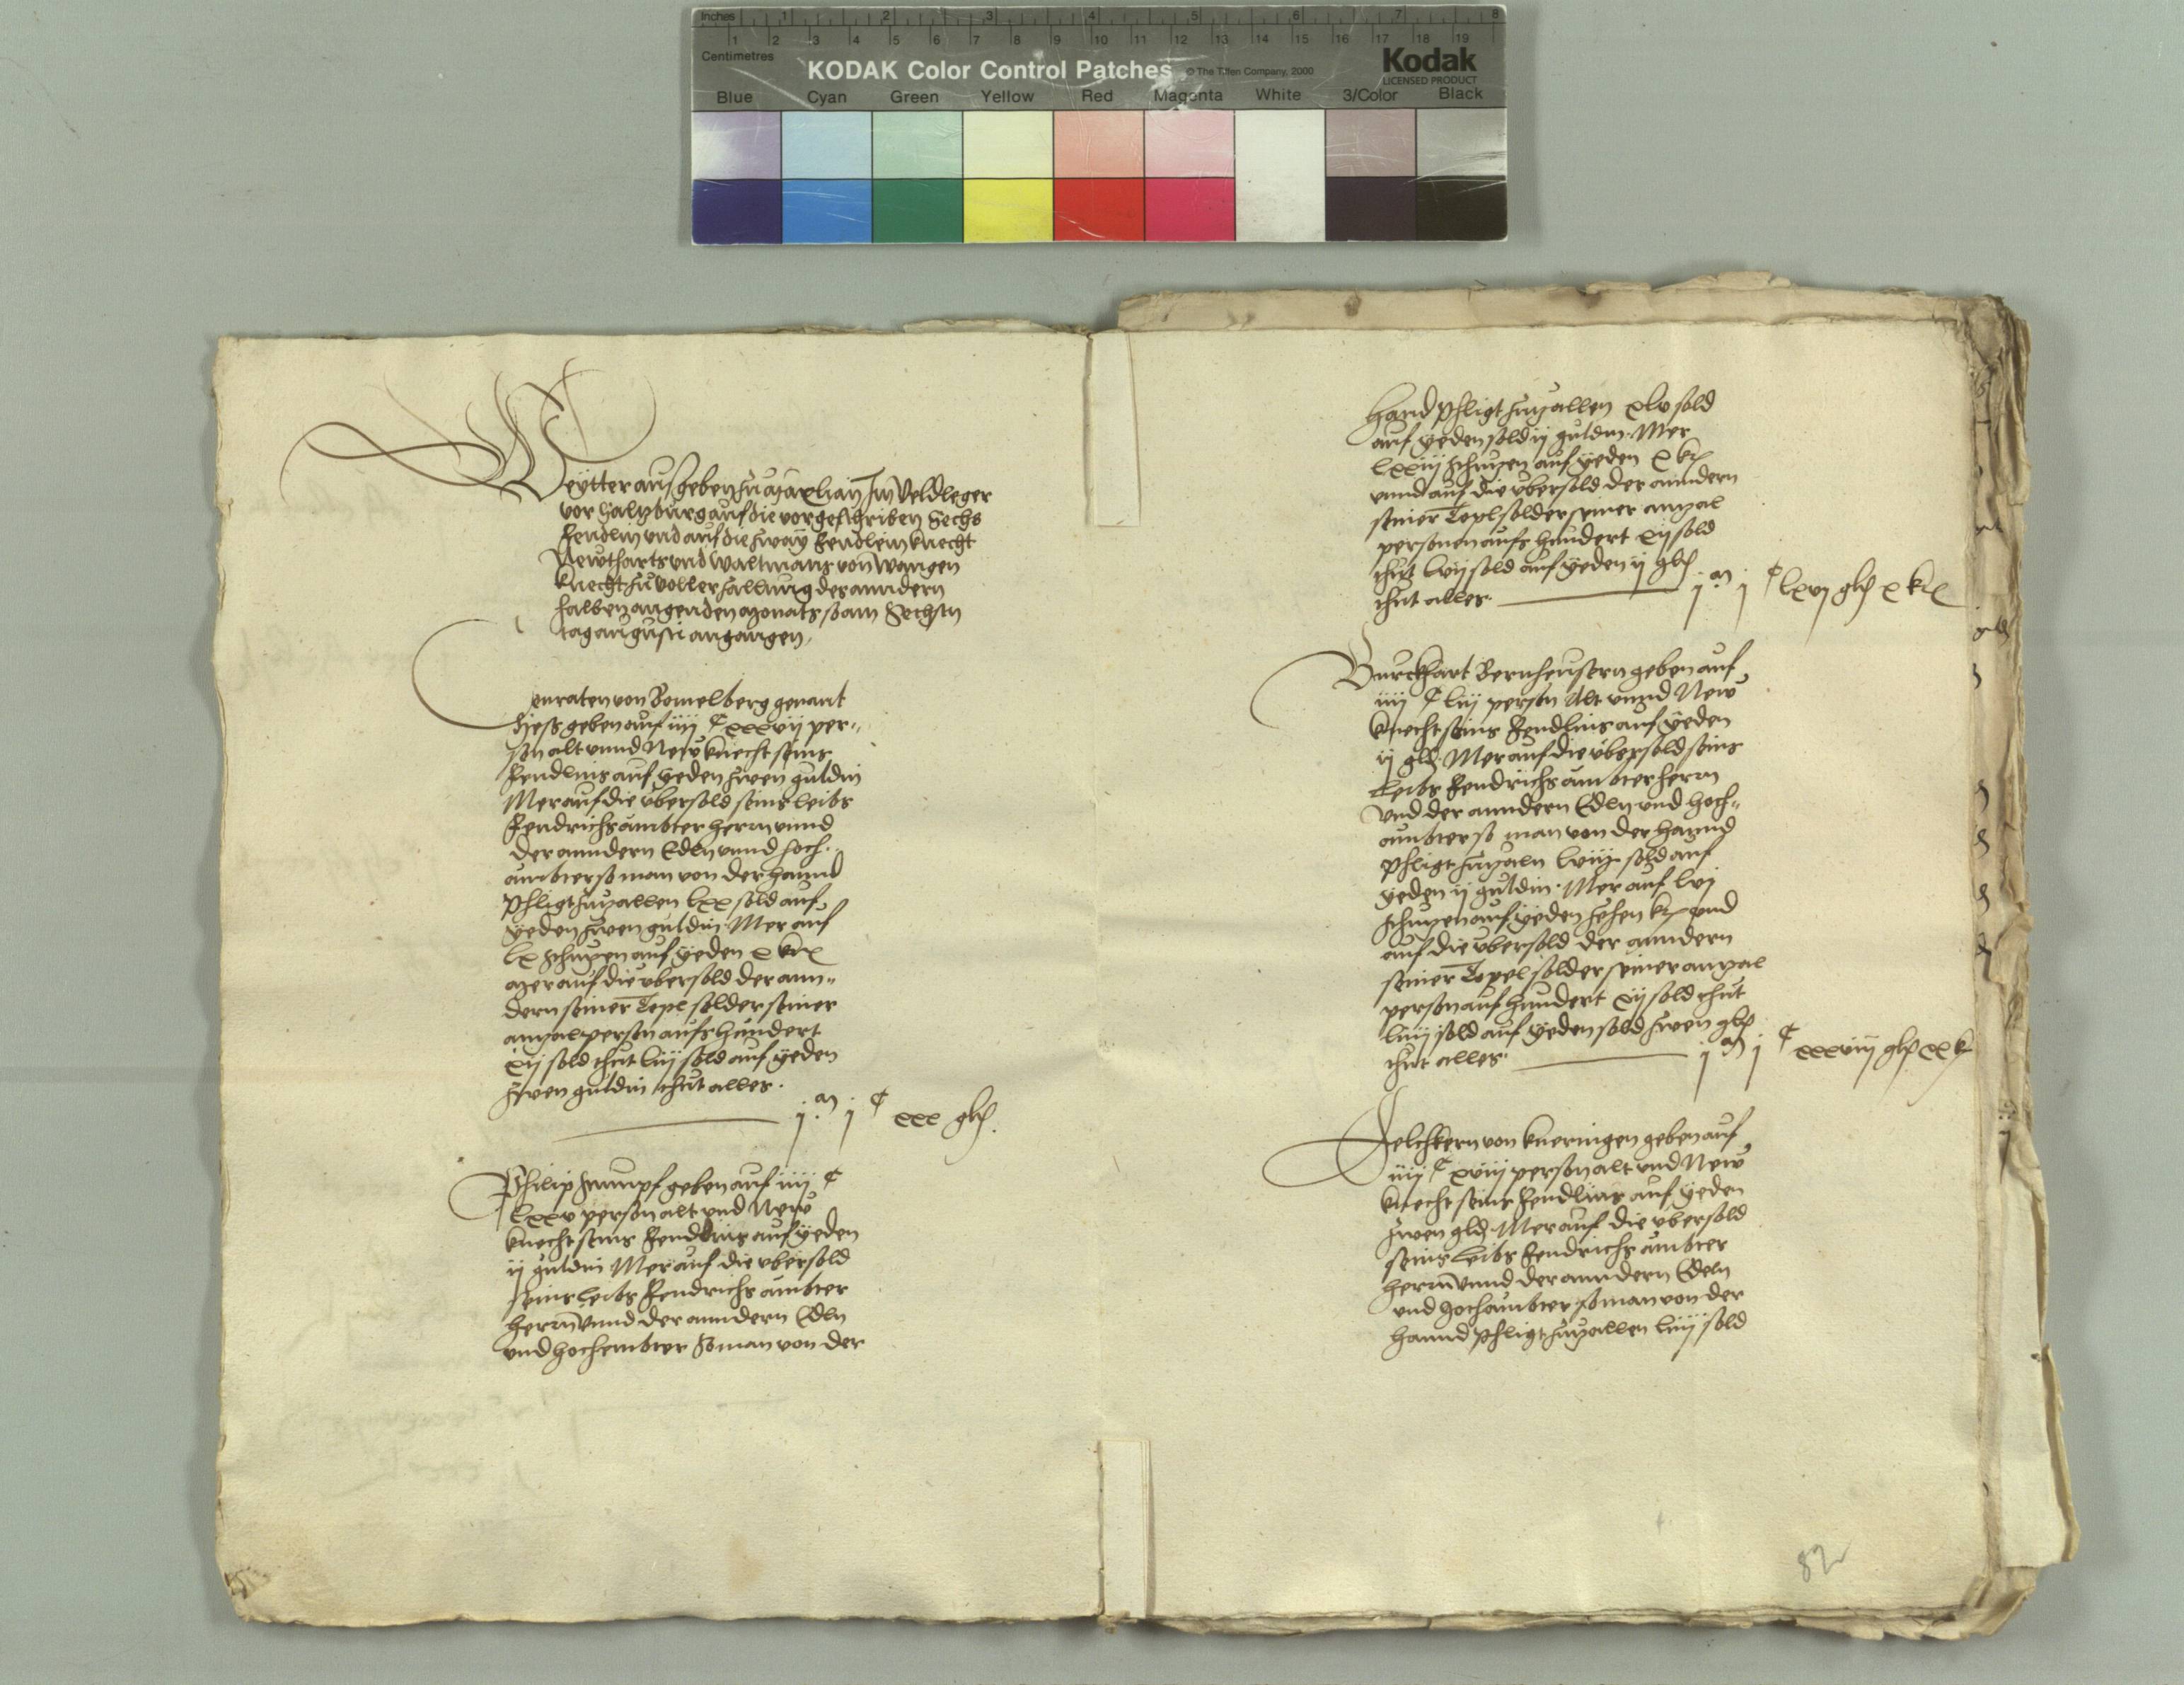 Inches 1 2 3 4 5 6 7 8
1 2 3 4 5 6 7 8 9 10 11 12 13 14 15 16 17 18 19
Centimetres
KODAK Color Control Patches © The Tiffen Company, 2000
Kodak
LICENSED PRODUCT
Blue Cyan Green Yellow Red Magenta White 3/Color Black
Weytter ausgeben zu Maxlhan Im Veldleger
vor Saltzburg auf die vorgeschriben Sechs
Fendlin vnd auf die zway Fendlein knecht
Newtharts vnd Waltmans von Wangen
knecht zu voller zallung des anndern
halben angenden monats so am Sechstn
tag augusti angangen
Conraten von Bomelberg genant
Hess geben auf iiij c xxxvij per-
son alt vnnd New knecht seins
Fendlins auf yeden zwen guldin
Mer auf die vbersold seins leibs
Fendrichs ambter herrn vnnd
der anndern Edln vnnd hoch-
ambter so man von der hannd
phligt zuzallen lxx sold auf
yeden zwen guldin Mer auf
lx schuzen auf yeden x krz
mer auf die vbersold der ann-
dern seiner Topl solder seiner
anzal person aufs hundert
xij sold thut liij sold auf yeden
zwen guldin thut alles
j m j c xxx gld
Philip Stumpf geben auf iiij c
lxxv person alt vnd New
knecht seins Fendlins auf yeden
ij guldin Mer auf die vbersold
seins leibs Fendrichs ambter
herrn vnnd der anndern Edln
vnd hochembter So man von der
hand phligt zuzallen xlv sold
auf yeden sold ij guldin Mer
lxxiij schuzen auf yeden x krz
vnnd auf die vbersold der anndern
seiner Toplsolder seiner anzal
personen aufs hundert xij sold
thut lvij sold auf yeden ij gld
thut alles j m j c lxvj gld x krz
Burckhart Bernheustern geben auf
iiij c liij person Alt vnnd New
knecht seins Fendlins auf yeden
ij gld Mer auf die vbersold seins
Leibs Fendrichs ambter herrn
vnd der anndern Edln vnd hoch-
ambter so man von der hannd
phligt zuzaln lviij sold auf
yeden ij guldin Mer auf lvj
schuzen auf yeden zehen krz vnd
auf die vbersold der anndern
seiner Topel solder seiner anzal
person auf hundert xij sold thut
liiij sold auf yeden sold zwen gld
thut alles j m j c xxxviiij gld xx k
Melchkern von kneringen geben auf
iiij c xviij person alt vnd New
knecht seins Fendlins auf yeden
zwen gld Mer auf die vbersold
seins leibs Fendrichs ambter
herrn vnnd der anndern Edeln
vnd Hochambter so man von der
hannd phligt zuzallen liiij sold
82